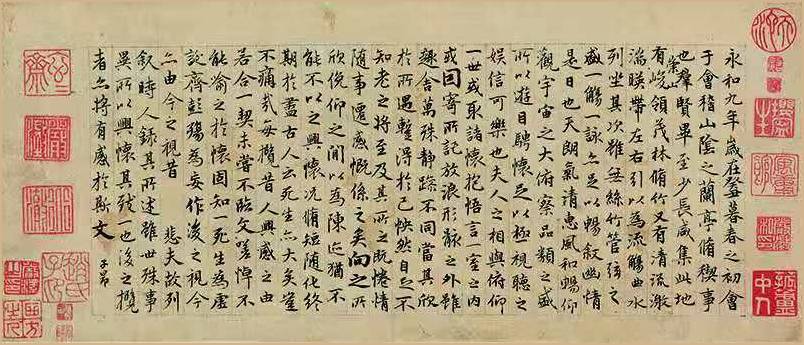 永和九年歲在癸丑暮春之初會
于會稽山陰之蘭亭脩稧事
也羣賢畢至少長咸集此地
有崇山峻領茂林脩竹又有清流激
湍暎帶左右引以為流觴曲水
列坐其次雖無絲竹管弦之
盛一觴一詠亦足以暢敘幽情
是日也天朗氣清惠風和暢仰
觀宇宙之大俯察品類之盛
所以遊目騁懷足以極視聽之
娛信可樂也夫人之相與俯仰
一世或取諸懷抱悟言一室之內
或因寄所託放浪形骸之外雖
趣舍萬殊靜躁不同當其欣
於所遇蹔得於己怏然自足不
知老之將至及其所之既惓情
隨事遷感慨係之矣向之所
欣俛仰之間以為陳迹猶不
能不以之興懷況脩短隨化終
期於盡古人云死生亦大矣豈
不痛哉每攬昔人興感之由
若合一契未嘗不臨文嗟悼不
能喻之於懷固知一死生為虛
誕齊彭殤為妄作後之視今
亦由今之視昔 悲夫故列
敘時人錄其所述雖世殊事
異所以興懷其致一也後之攬
者亦將有感於斯文 子昂
趙氏子昂